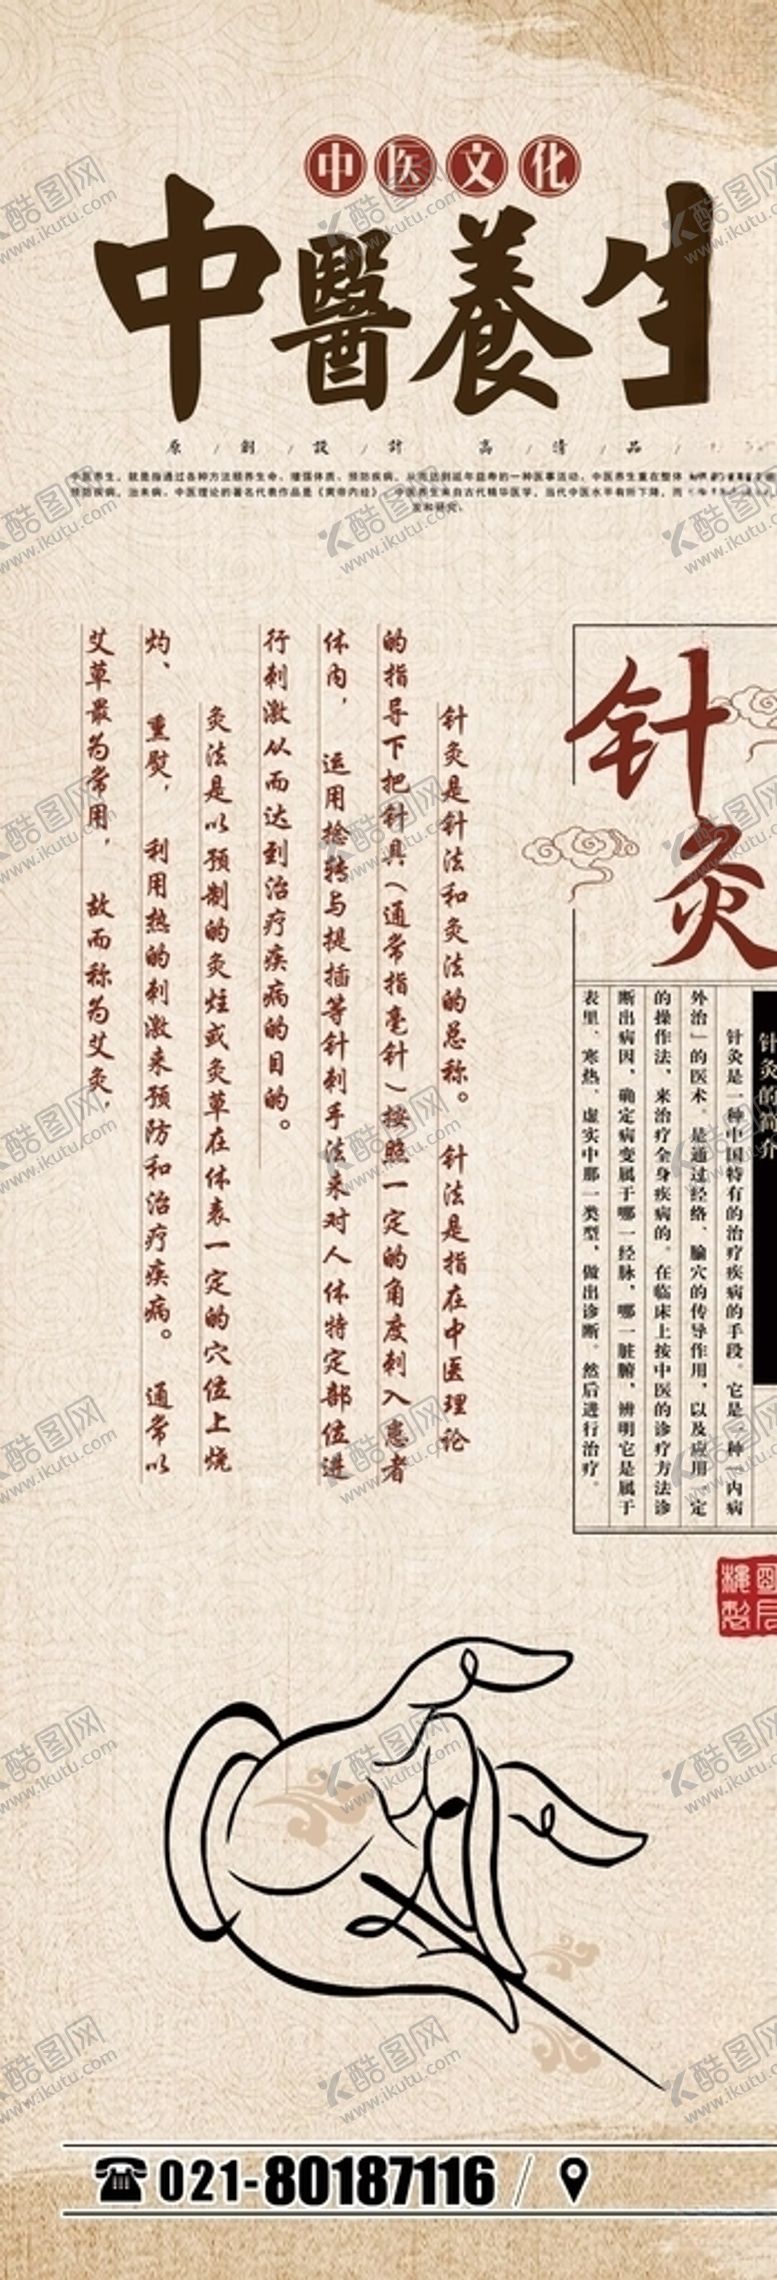 中医文化
中醫養生
原/創/設/計 高/清/品/
中医养生，就是指通过各种方法颐养生命、增强体质、预防疾病，从而达到延年益寿的一种医事活动。中医养生重在整体
预防疾病，治未病。中医理论的著名代表作品是《黄帝内经》，中医养生来自古代精华医学，当代中医水平有所下降，而
发和研究。
针灸
针灸的简介
针灸是一种中国特有的治疗疾病的手段。它是一种一内病
外治」的医术。是通过经络、腧穴的传导作用，以及应用一定
的操作法，来治疗全身疾病的。在临床上按中医的诊疗方法诊
断出病因，确定病变属于哪一经脉，哪一脏腑，辨明它是属于
表里、寒热、虚实中那一类型，做出诊断。然后进行治疗。
针灸是针法和灸法的总称。针法是指在中医理论
的指导下把针具（通常指毫针）按照一定的角度刺入患者
体内，运用捻转与提插等针刺手法来对人体特定部位进
行刺激从而达到治疗疾病的目的。
灸法是以预制的灸炷或灸草在体表一定的穴位上烧
灼、熏熨，利用热的刺激来预防和治疗疾病。通常以
艾草最为常用，故而称为艾灸，
021-80187116 /
酷图网
www.ikutu.com